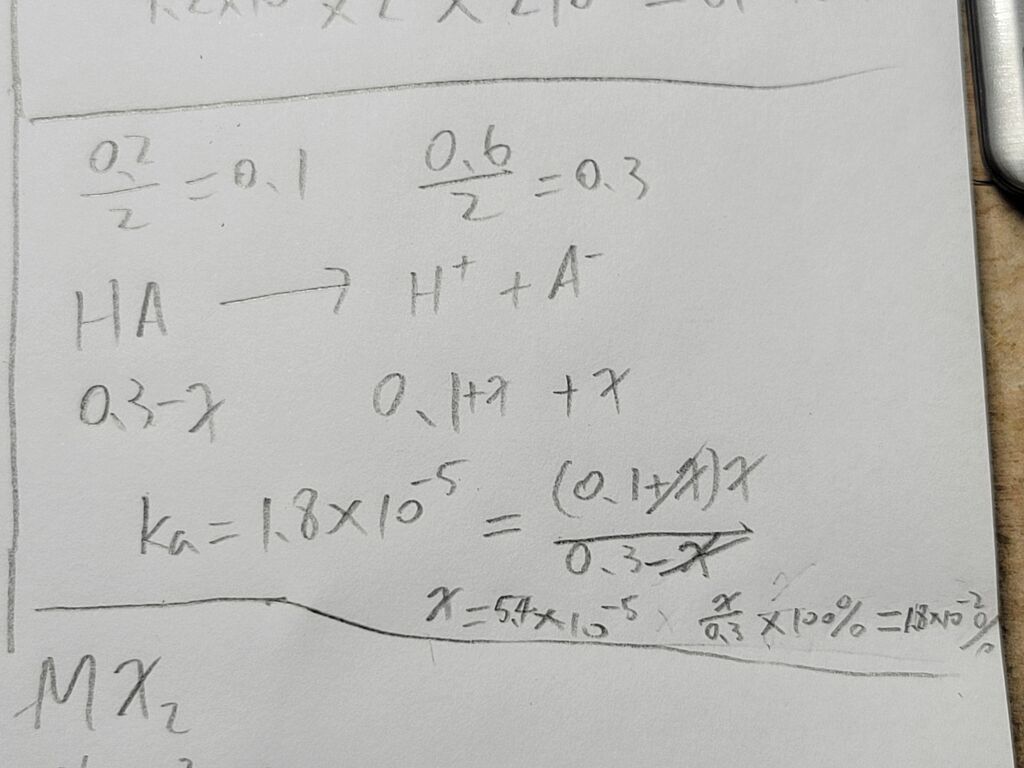 0.2/2 = 0.1 0.6/2 = 0.3
HA → H⁺ + A⁻
0.3-x 0.1+x +x
ka = 1.8×10⁻⁵ = (0.1+x)x/0.3-x
x = 5.4×10⁻⁵ x/0.3 × 100% = 1.8×10⁻²%
MX₂